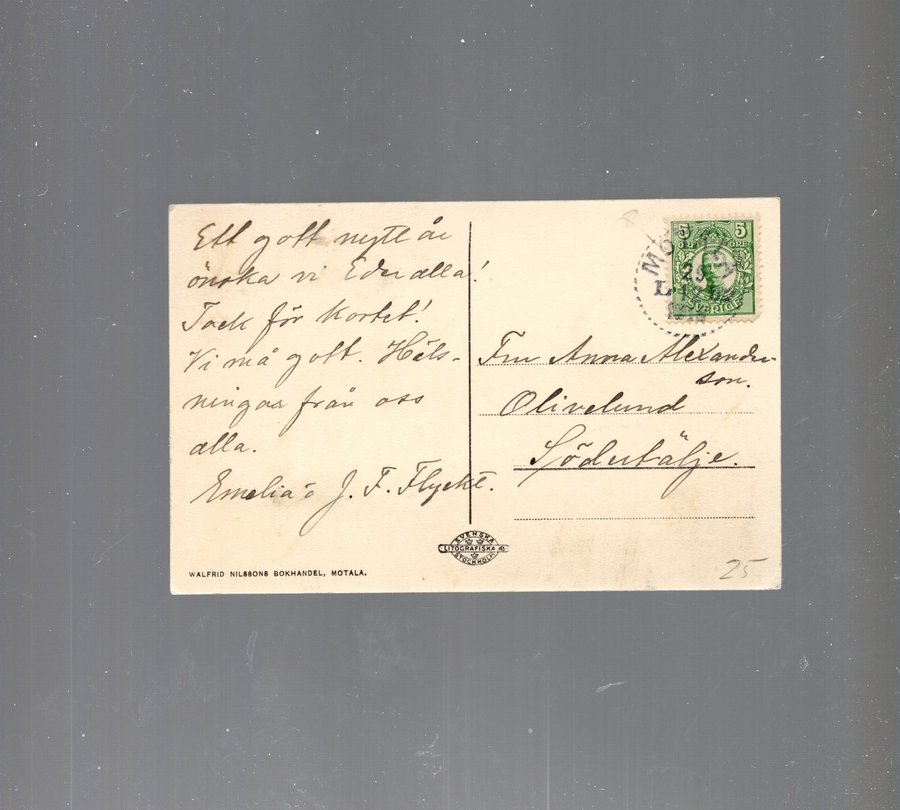 Ett gott nytt år
önska vi Eder alla!
Tack för kortet!
Vi må gott. Häls-
ningar från oss
alla.
Emelia o J. F. Flyckt.
5 5
ÖRE ÖRE
SVERIGE
MOTALA
29
Fru Anna Alexander-
son.
Olivelund
Södertälje.
SVENSKA
LITOGRAFISKA AB
STOCKHOLM
WALFRID NILSSONS BOKHANDEL, MOTALA.
25